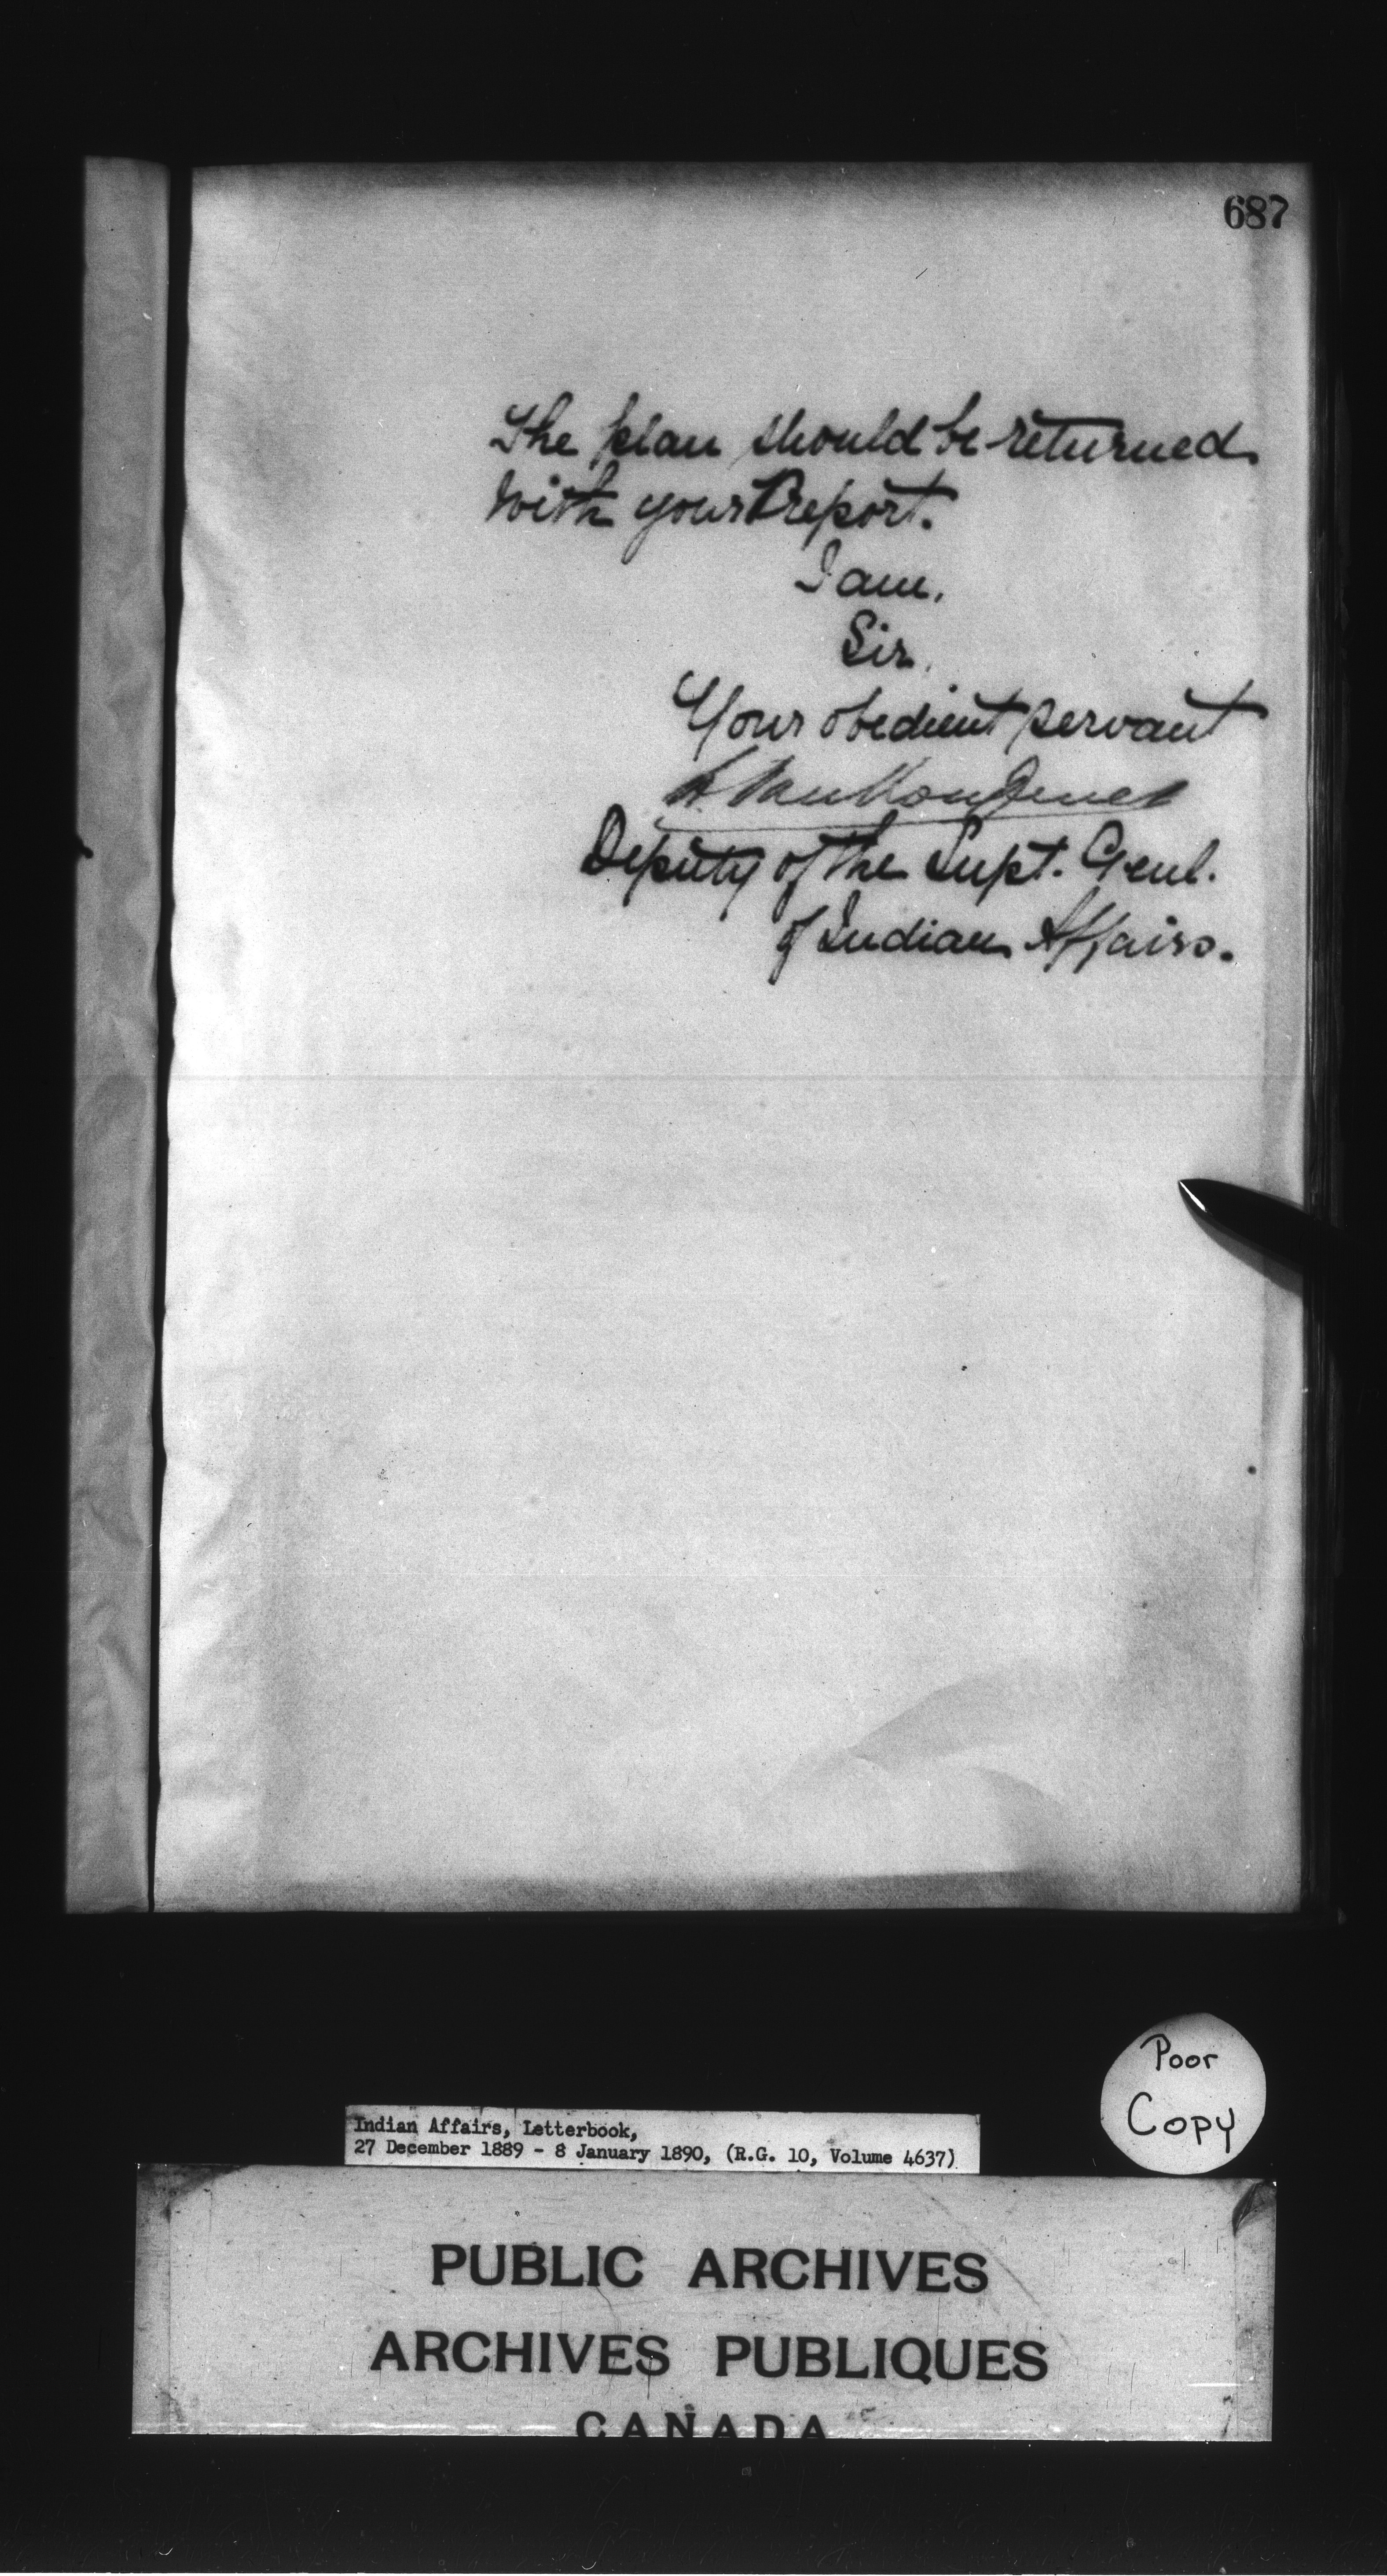 687
The plan should be returned
with your Report.
I am,
Sir,
Your obedient servant
L. VanKoughnet
Deputy of the Supt. Genl.
of Indian Affairs.
Poor
Copy
Indian Affairs, Letterbook,
27 December 1889 - 8 January 1890, (R.G. 10, Volume 4637)
PUBLIC ARCHIVES
ARCHIVES PUBLIQUES
CANADA